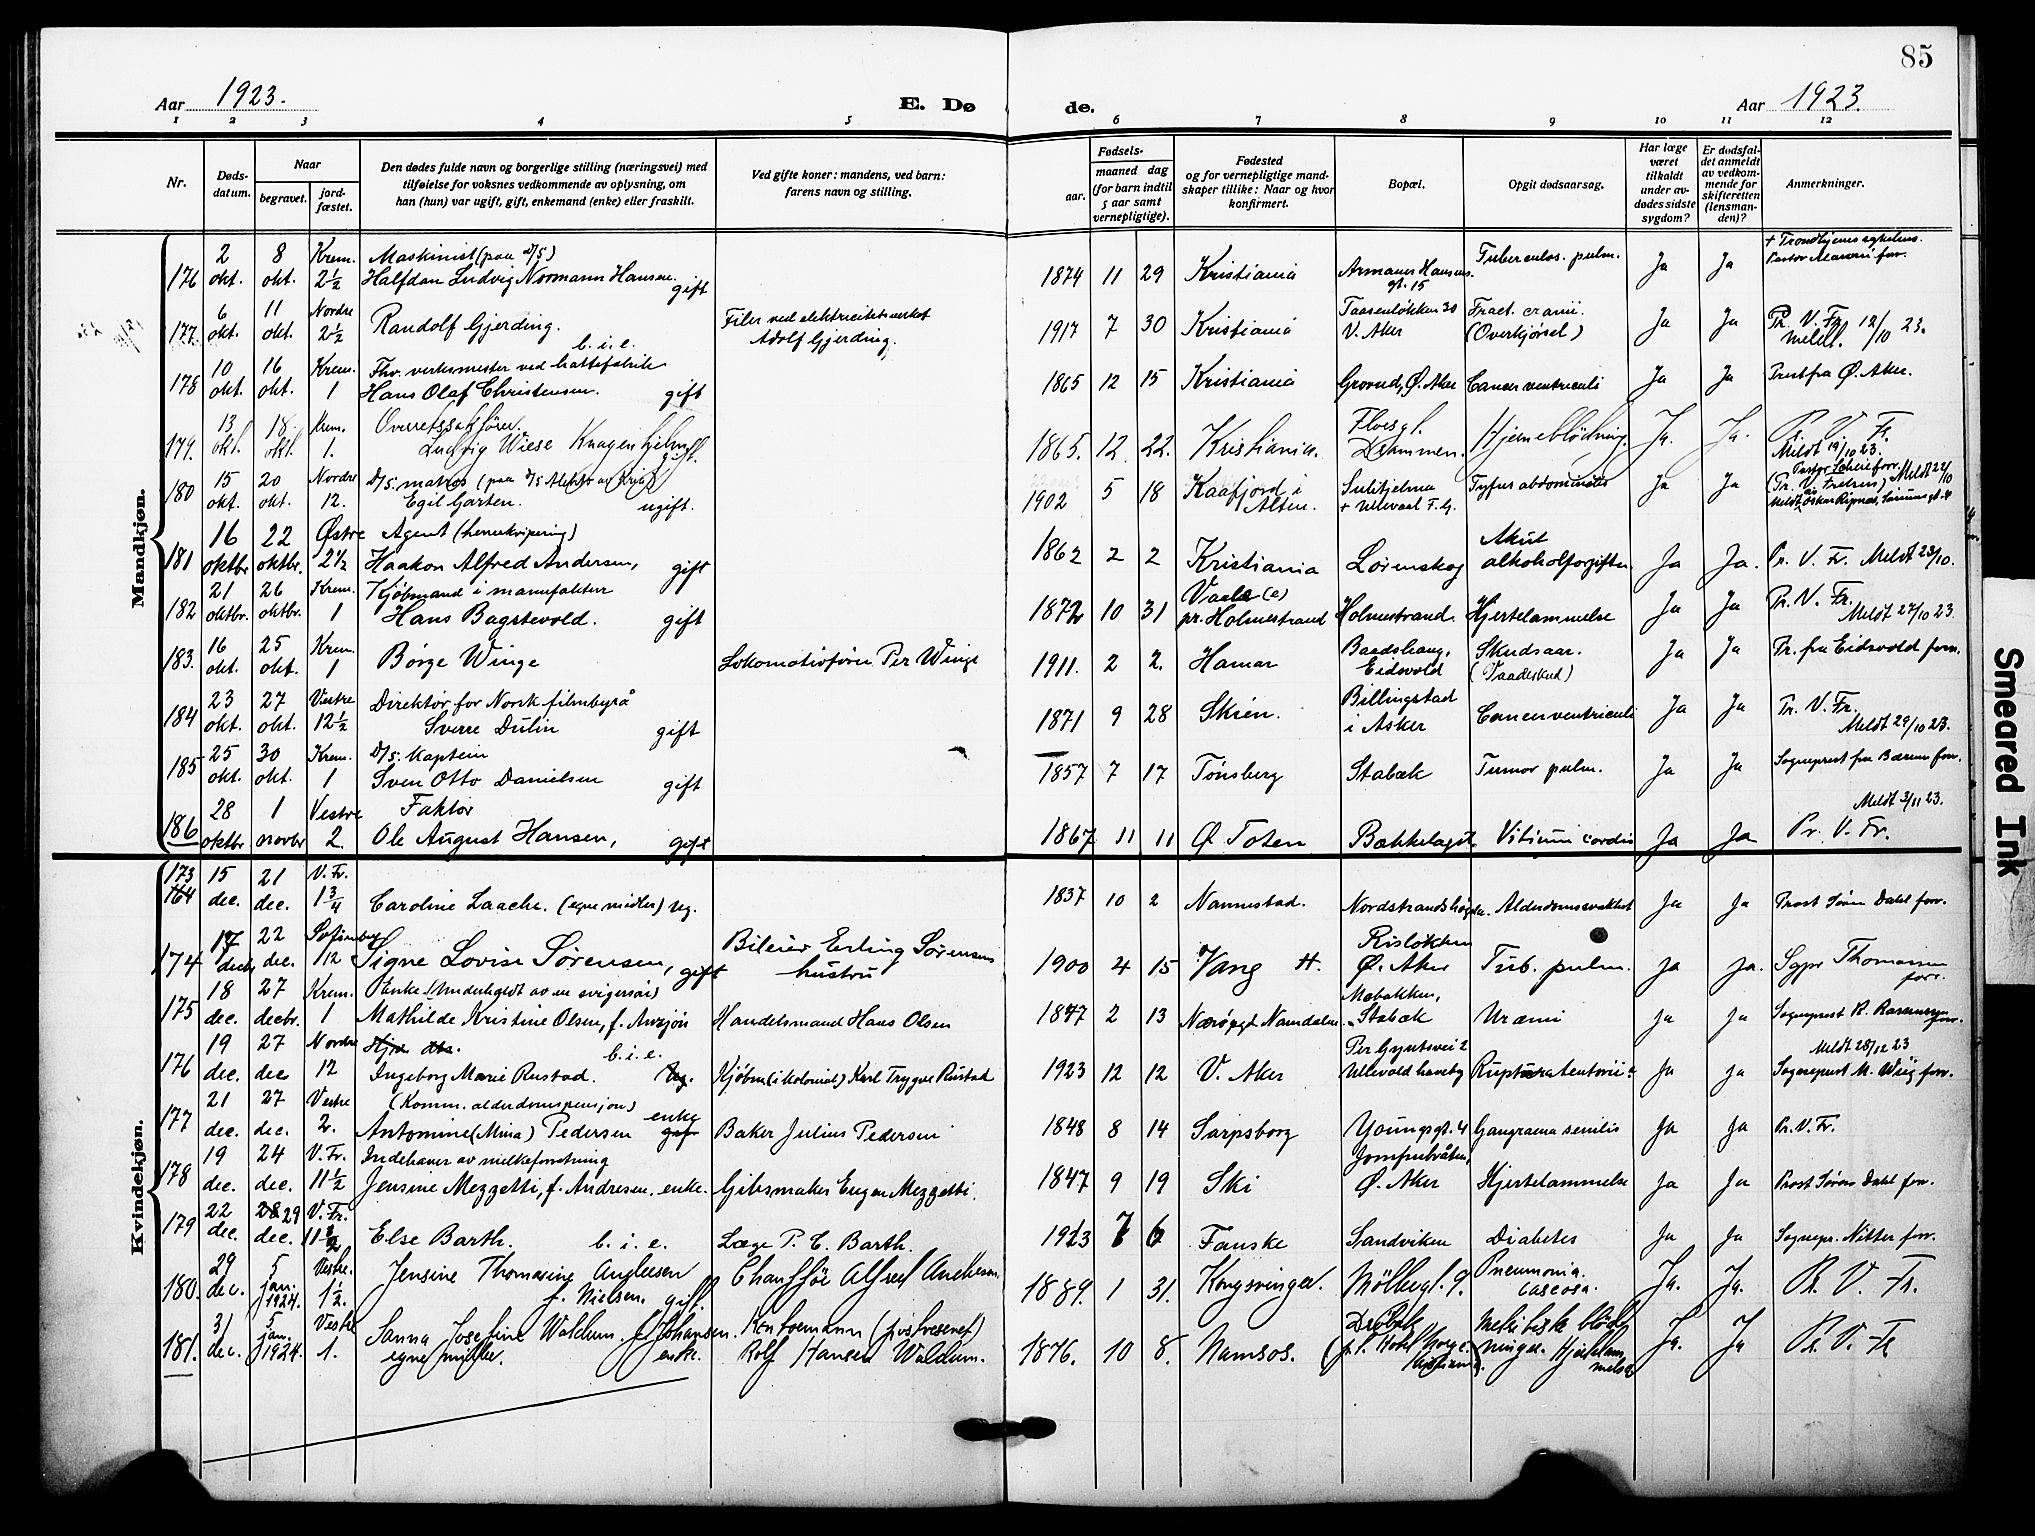 85
Aar 1923.
E. Dø de.
Aar 1923.
1 2 3 4 5 6 7 8 9 10 11 12
Nr.
Døds-datum.
Naar
begravet.
jord-fæstet.
Den dødes fulde navn og borgerlige stilling (næringsvei) med
tilføielse for voksnes vedkommende av oplysning, om
han (hun) var ugift, gift, enkemand (enke) eller fraskilt.
Ved gifte koner: mandens, ved barn:
farens navn og stilling.
Fødsels-
aar.
maaned dag
(for barn indtil
5 aar samt
vernepligtige).
Fødested
og for vernepligtige mand-
skaper tillike: Naar og hvor
konfirmert.
Bopæl.
Opgit dødsaarsag.
Har læge
været
tilkaldt
under av-
dødes sidste
sygdom?
Er dødsfal-
det anmeldt
av vedkom-
mende for
skifteretten
(lensman-
den)?
Anmerkninger.
Mandkjøn.
176 2 okt. 8 okt. Krem. 2½ Maskinist (paa D/S) Halfdan Ludvig Normann Hansen. gift 1874 11 29 Kristiania Armauer Hansens gt. 15 Tuberculos. pulm. Ja Ja + Trondhjems sykehus.
177. 6 okt. 11 okt. Nordre 2½ Randolf Gjerding. b. i. e. Filer ved elektricitetsverket Adolf Gjerding. 1917 7 30 Kristiania Taasenløkken 30 V. Aker Fract. cranii. (Overkjørsel) Ja Ja Pr. V. Fr. Meldt. 12/10 23.
178 10 okt. 16 okt. Krem. 1 Fhv. verksmester ved hattefabrik Hans Olaf Christensen. gift 1865 12 15 Kristiania Grorud, Ø. Aker Cancer ventriculi Ja Ja Prest fra Ø. Aker.
179. 13 okt. 18. okt. Krem. 1. Overretssakfører. Ludvig Wiese Knagenhjelm gift. 1865. 12. 22. Kristiania. Drammen. Hjerneblødning. Ja. Ja. Pr. V. Fr. Meldt 19/10 23.
180 15 okt. 20 okt. Nordre 12. D/S. matros Egil Garten. ugift. 1902 5 18 Kaafjord i Alten. Sulitjelma + Ullevaal Tyfus abdominalis Ja Ja Meldt 22/10
181 16 oktbr 22 oktbr. Østre 2½ Agent (herreekvipering) Haakon Alfred Andersen, gift 1862 2 2 Kristiania Lørenskog Akut alkoholforgiftn. Ja Ja. Pr. V. Fr. Meldt 23/10.
182 21 oktbr. 26 oktbr. Krem. 1 Kjøbmand i manufaktur Hans Bagstevold. gift 1872 10 31 Vaale (e) pr. Holmestrand Holmestrand. Hjertelammelse Ja Ja Pr. V. Fr. Meldt 27/10 23.
183. 16 okt. 25 okt. Krem. 1 Børge Winge Lokomotivfører Per Winge 1911. 2 2. Hamar Eidsvold Skudsaar. (Vaadeskud) Ja Ja Pr. fra Eidsvold forr.
184 23 okt. 27 okt. Vestre 12½ Direktør for Norsk filmbyrå Sverre Dulin gift 1871 9 28 Skien. Billingstad i Asker Cancer ventriculi Ja Ja Pr. V. Fr. Meldt 29/10 23.
185 25 okt. 30 okt. Krem. 1 D/S. kaptein Sven Otto Danielsen gift 1857 7 17 Tønsberg Stabæk Tumor pulm. Ja Ja Sogneprest fra Bærum forr.
186 28 oktbr 1 novbr Vestre 2. Faktor Ole August Hansen, gift 1867 11 11 Ø Toten Bækkelaget Vitium cordis Ja Ja Meldt 3/11 23. Pr. V. Fr.
Kvindekjøn.
173 164 15 dec. 21 dec. V. Fr. 1¾ Caroline Laache. (egne midler) ug. 1837 10 2 Nannestad. Nordstrandshøgda. Alderdomssvakhet Ja Ja Prost Sören Dahl forr.
174 17 decbr 22 dec. Sofienberg 12 Signe Lovise Sørensen, gift Bileier Erling Sørensens hustru 1900 4 15 Vang H. Risløkken Ø. Aker Tub. pulm. Ja Ja. Sgpr Thomassen forr.
175 18 dec. 27 decbr. Krem. 1 Enke (Underholdt av en svigersøn) Mathilde Kristine Olsen, f. Anzjøn Handelsmand Hans Olsen 1847 2 13 Nærø pgt Namdalen Stabæk Uræmi Ja Ja Sogneprest R. Rasmussen forr.
176 19 dec. 27 dec Nordre 12 b. i. e. Ingeborg Marie Rustad. Ug. Kjøbm. (i kolonial) Karl Trygve Rustad 1923 12 12 V. Aker Per Gyntsvei 2 Ullevold haveby Ruptura tentorii Ja Ja Meldt 28/12 23 Sogneprest M. Wiig forr.
177 21 dec. 27 dec. Vestre 2. (Komm. alderdomspensjon) Antomine (Mina) Pedersen enke gift Baker Julius Pedersen 1848 8 14 Sarpsborg Youngsgt. 4 Gangraena senilis Ja Ja Pr. V. Fr.
178 19 dec. 24 dec. V. Fr. 11½ Indehaver av melkeforretning Jensine Mezzetti, f. Andresen. enke. Gibsmaker Eugen Mezzetti. 1847 9 19 Ski Jomfrubråten, Ø. Aker Hjertelammelse Ja Ja Prost Sören Dahl forr.
179 22 dec. 28 29 dec. V. Fr. 11½ Else Barth. b. i. e. Læge P. C. Barth. 1923 7 6 Fauske Sandviken Diabetes Ja Ja Sognepr. Nitter forr.
180. 29 dec. 5 jan. 1924. Vestre. 1½. Jensine Thomasine Andersen f. Nielsen. gift. Chauffør Alfred Andersen 1889. 1 31. Kongsvinger. Møllergt. 9. Pneumonia. caseosa. Ja. Ja. Pr. V. Fr.
181. 31 dec. 5 jan. 1924. Vestre 1. Sanna Josefine Waldum. f. Johansen. egne midler. enke. Kontormann (postvesenet) Rolf Hansen Waldum. 1876. 10 8. Namsos. Drøbak Ja. Ja Pr. V. Fr
Smeared Ink